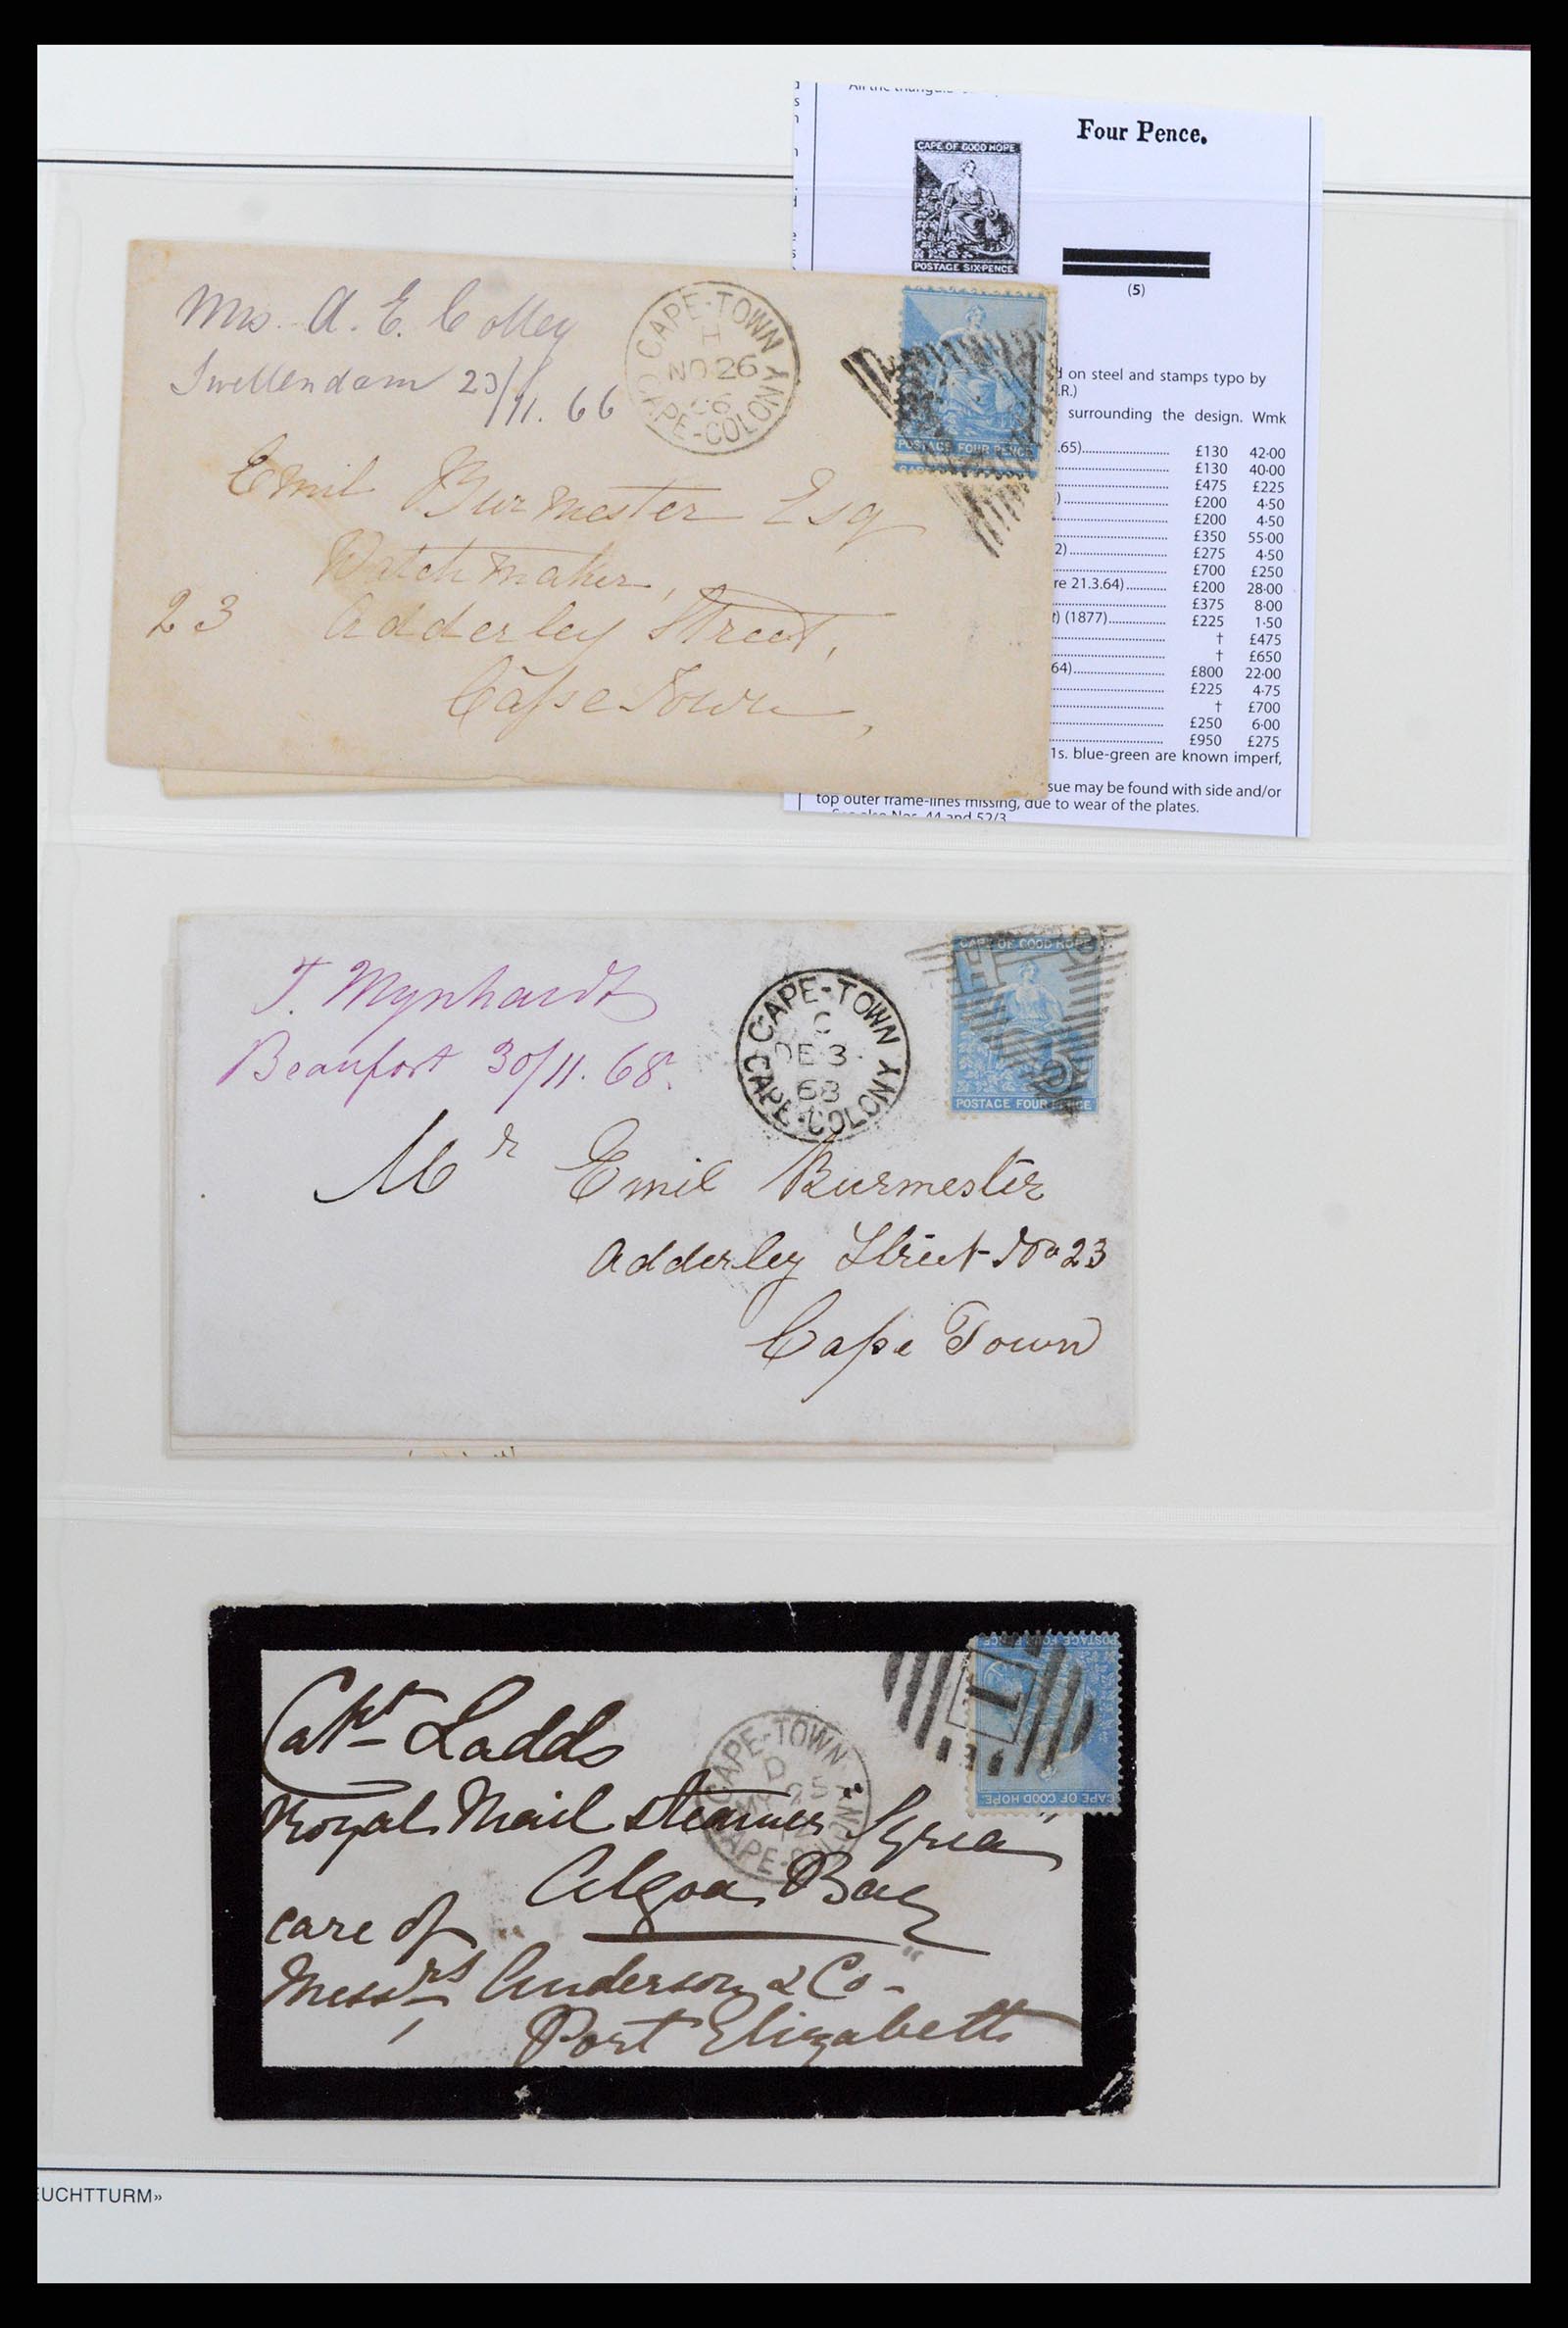 Four Pence.
CAPE OF GOOD HOPE
POSTAGE SIX-PENCE
(5)
d on steel and stamps typo by
.R.)
surrounding the design. Wmk
.65) £130 42·00
£130 40·00
£475 £225
) £200 4·50
£200 4·50
£350 55·00
2) £275 4·50
£700 £250
re 21.3.64) £200 28·00
£375 8·00
) (1877) £225 1·50
† £475
† £650
64) £800 22·00
£225 4·75
† £700
£250 6·00
£950 £275
1s. blue-green are known imperf,
sue may be found with side and/or
top outer frame-lines missing, due to wear of the plates.
See also Nos. 44 and 52/3
Mrs. A. E. Colley
Swellendam 23/11. 66
CAPE-TOWN
NO 26
66
CAPE-COLONY
POSTAGE FOUR PENCE
Emil Burmester Esq
Watchmaker,
23 Adderley Street,
Cape Town,
T. Mynhardt
Beaufort 30/11. 68.
CAPE-TOWN
C
DE 3
68
CAPE-COLONY
CAPE OF GOOD HOPE
POSTAGE FOUR PENCE
Mr Emil Burmester
Adderley Street No 23
Cape Town
POSTAGE FOUR PENCE
CAPE OF GOOD HOPE.
CAPE-TOWN
D
Capt Ladds
Royal Mail steamer "Syria"
Algoa Bay
care of
Messrs Anderson & Co-
Port Elizabeth
EUCHTTURM»